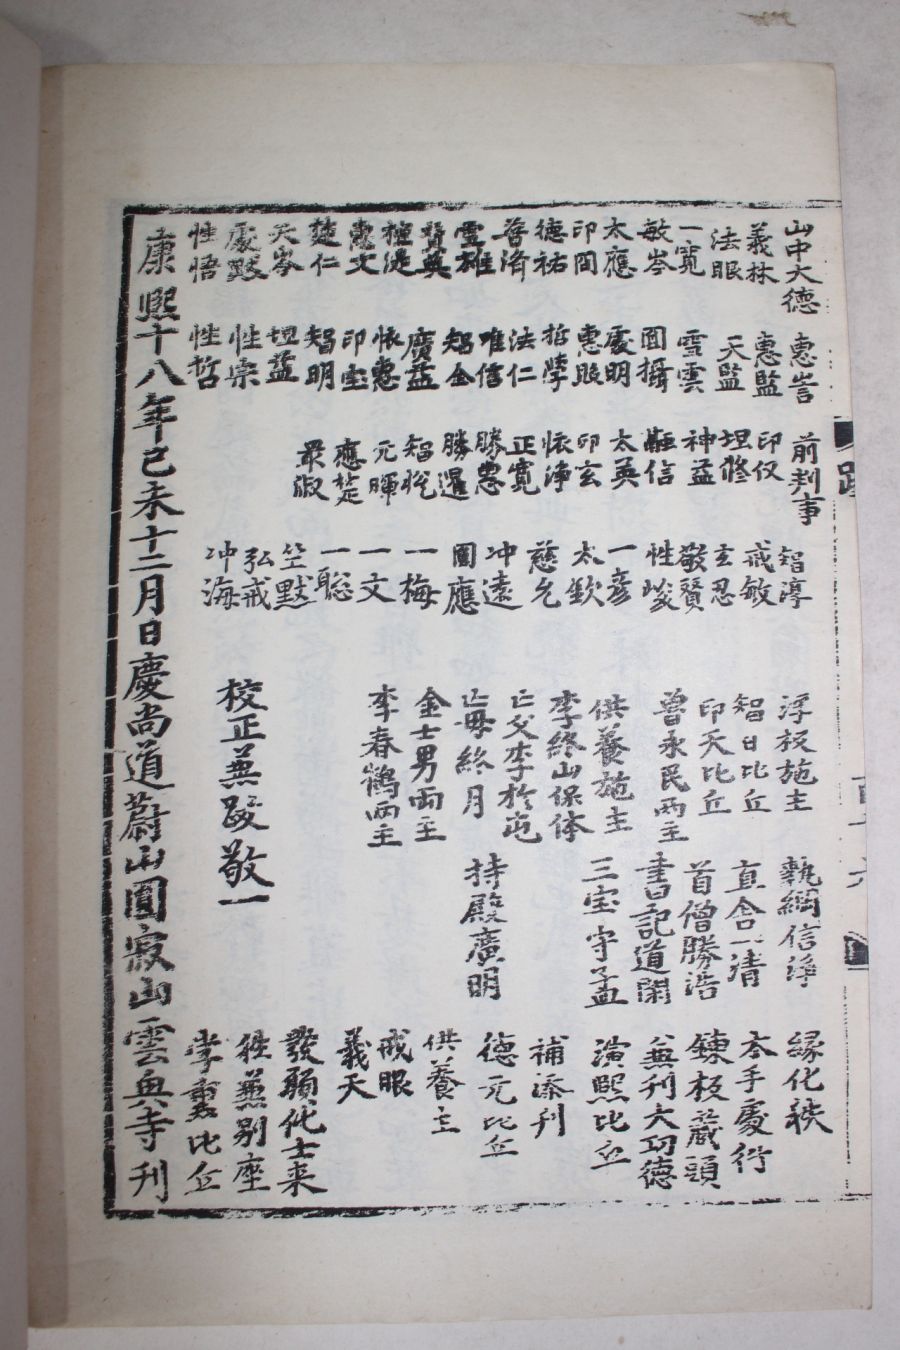 山中大德 惠訔 前判事 智淳 浮板施主 執綱信淨 緣化秩
義林 惠監 印仅 戒敏 智日比丘 直舍一清 本手處行
法眼 天監 坦修 玄忍 印天比丘 首僧勝浩 鍊板藏頭
一寬 雪雲 神益 敬賢 曾永民兩主 書記道閑 兼刊大功德
敏岑 圓攝 離信 性峻 供養施主 三宝守孟 演熙比丘
太應 處明 太英 一彦 李終山保体 補添刊
印間 惠眼 印玄 太欽 亡父李於屯 持殿廣明 德元比丘
德祐 哲 依淨 慈允 亡母終月 供養主
普済 法仁 正寬 冲遠 金士男兩主 戒眼
雪雄 唯信 勝惠 圓應 李春鶴兩主 義天
賛英 智全 勝暹
禮湜 廣益 智悦 一梅
惠文 依惠 元暉 一文
楚仁 印宝 應楚 一聡
天岑 智明 最淑 竺默
處默 坦益 弘戒 校正兼跋敬一 發願化士來
性悟 性崇 冲海 往兼别座
性哲 李 比丘
康熙十八年己未十二月日慶尚道蔚山圓寂山雲興寺刊